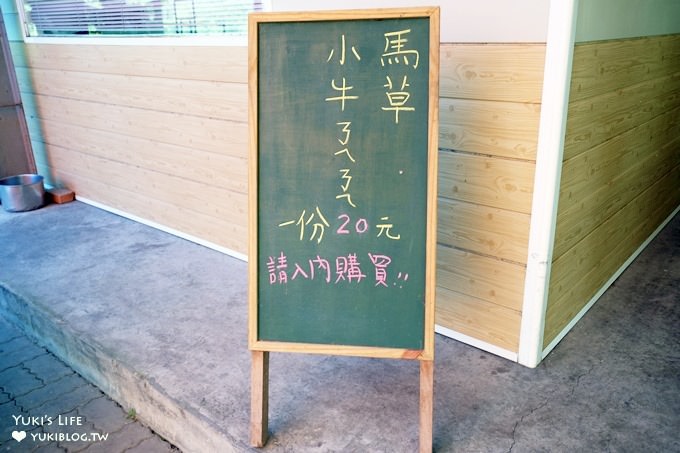 馬草
小牛ㄋㄟㄋㄟ
一份20元
請入內購買!!
YUKI'S LIFE
YUKIBLOG.TW